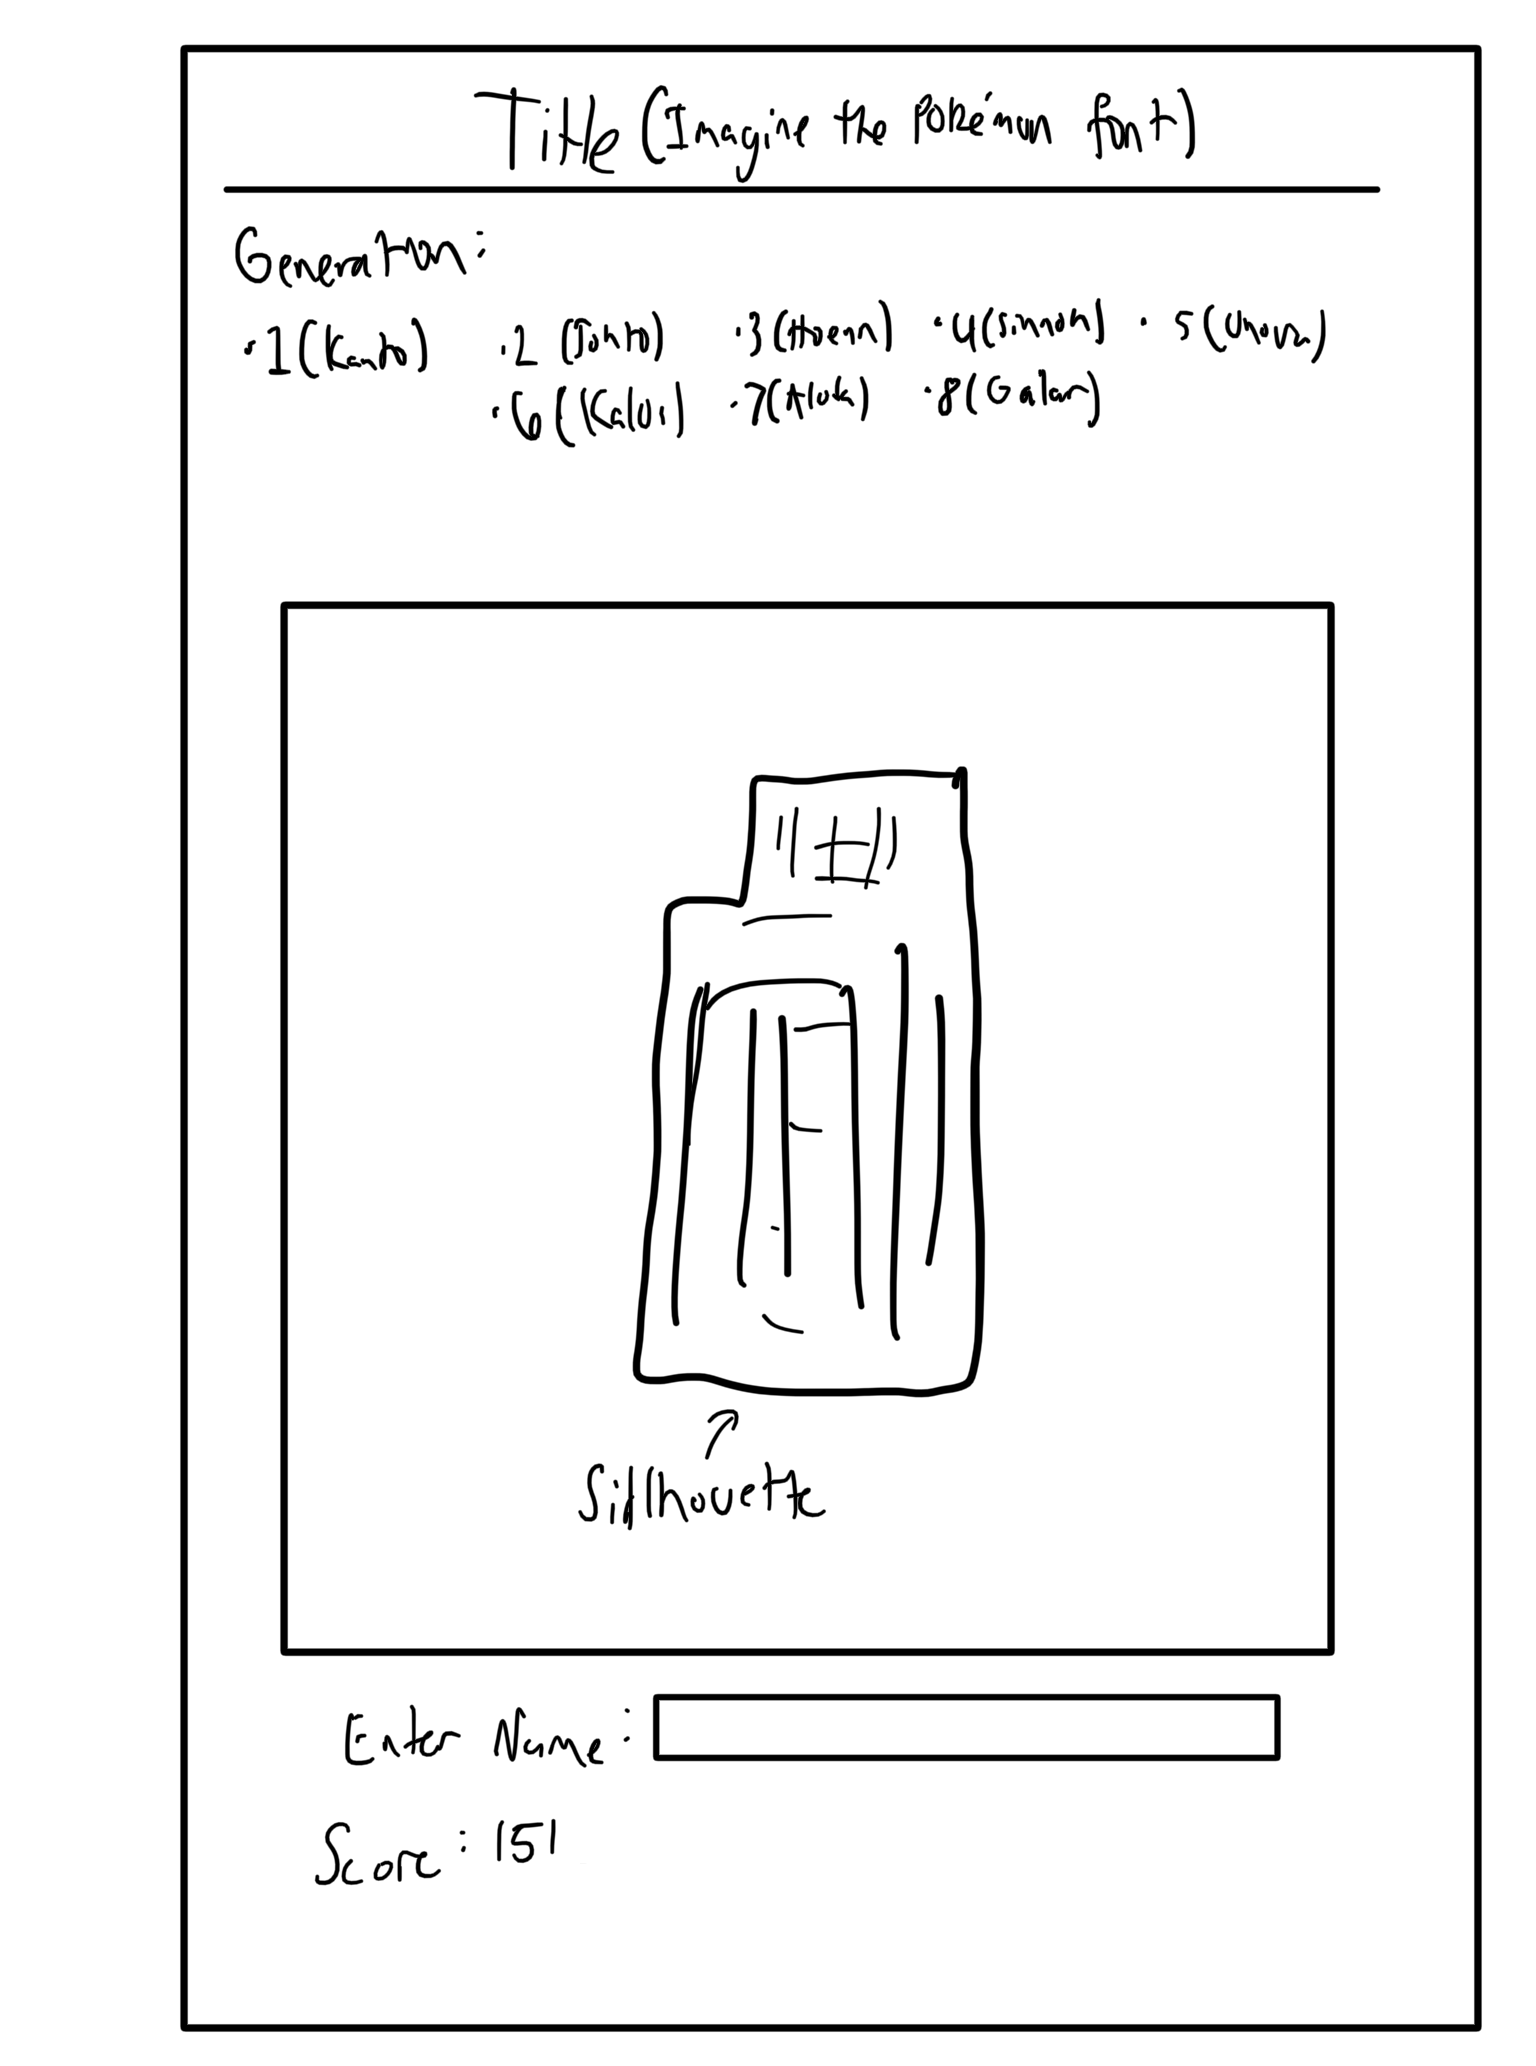 Title (Imagine the Pokémon font)
Generation:
·1 (Kanto) ·2 (Johto) ·3 (Hoenn) ·4 (Sinnoh) ·5 (Unova)
·6 (Kalos) ·7 (Alola) ·8 (Galar)
Sillhouette
Enter Name:
Score: 151